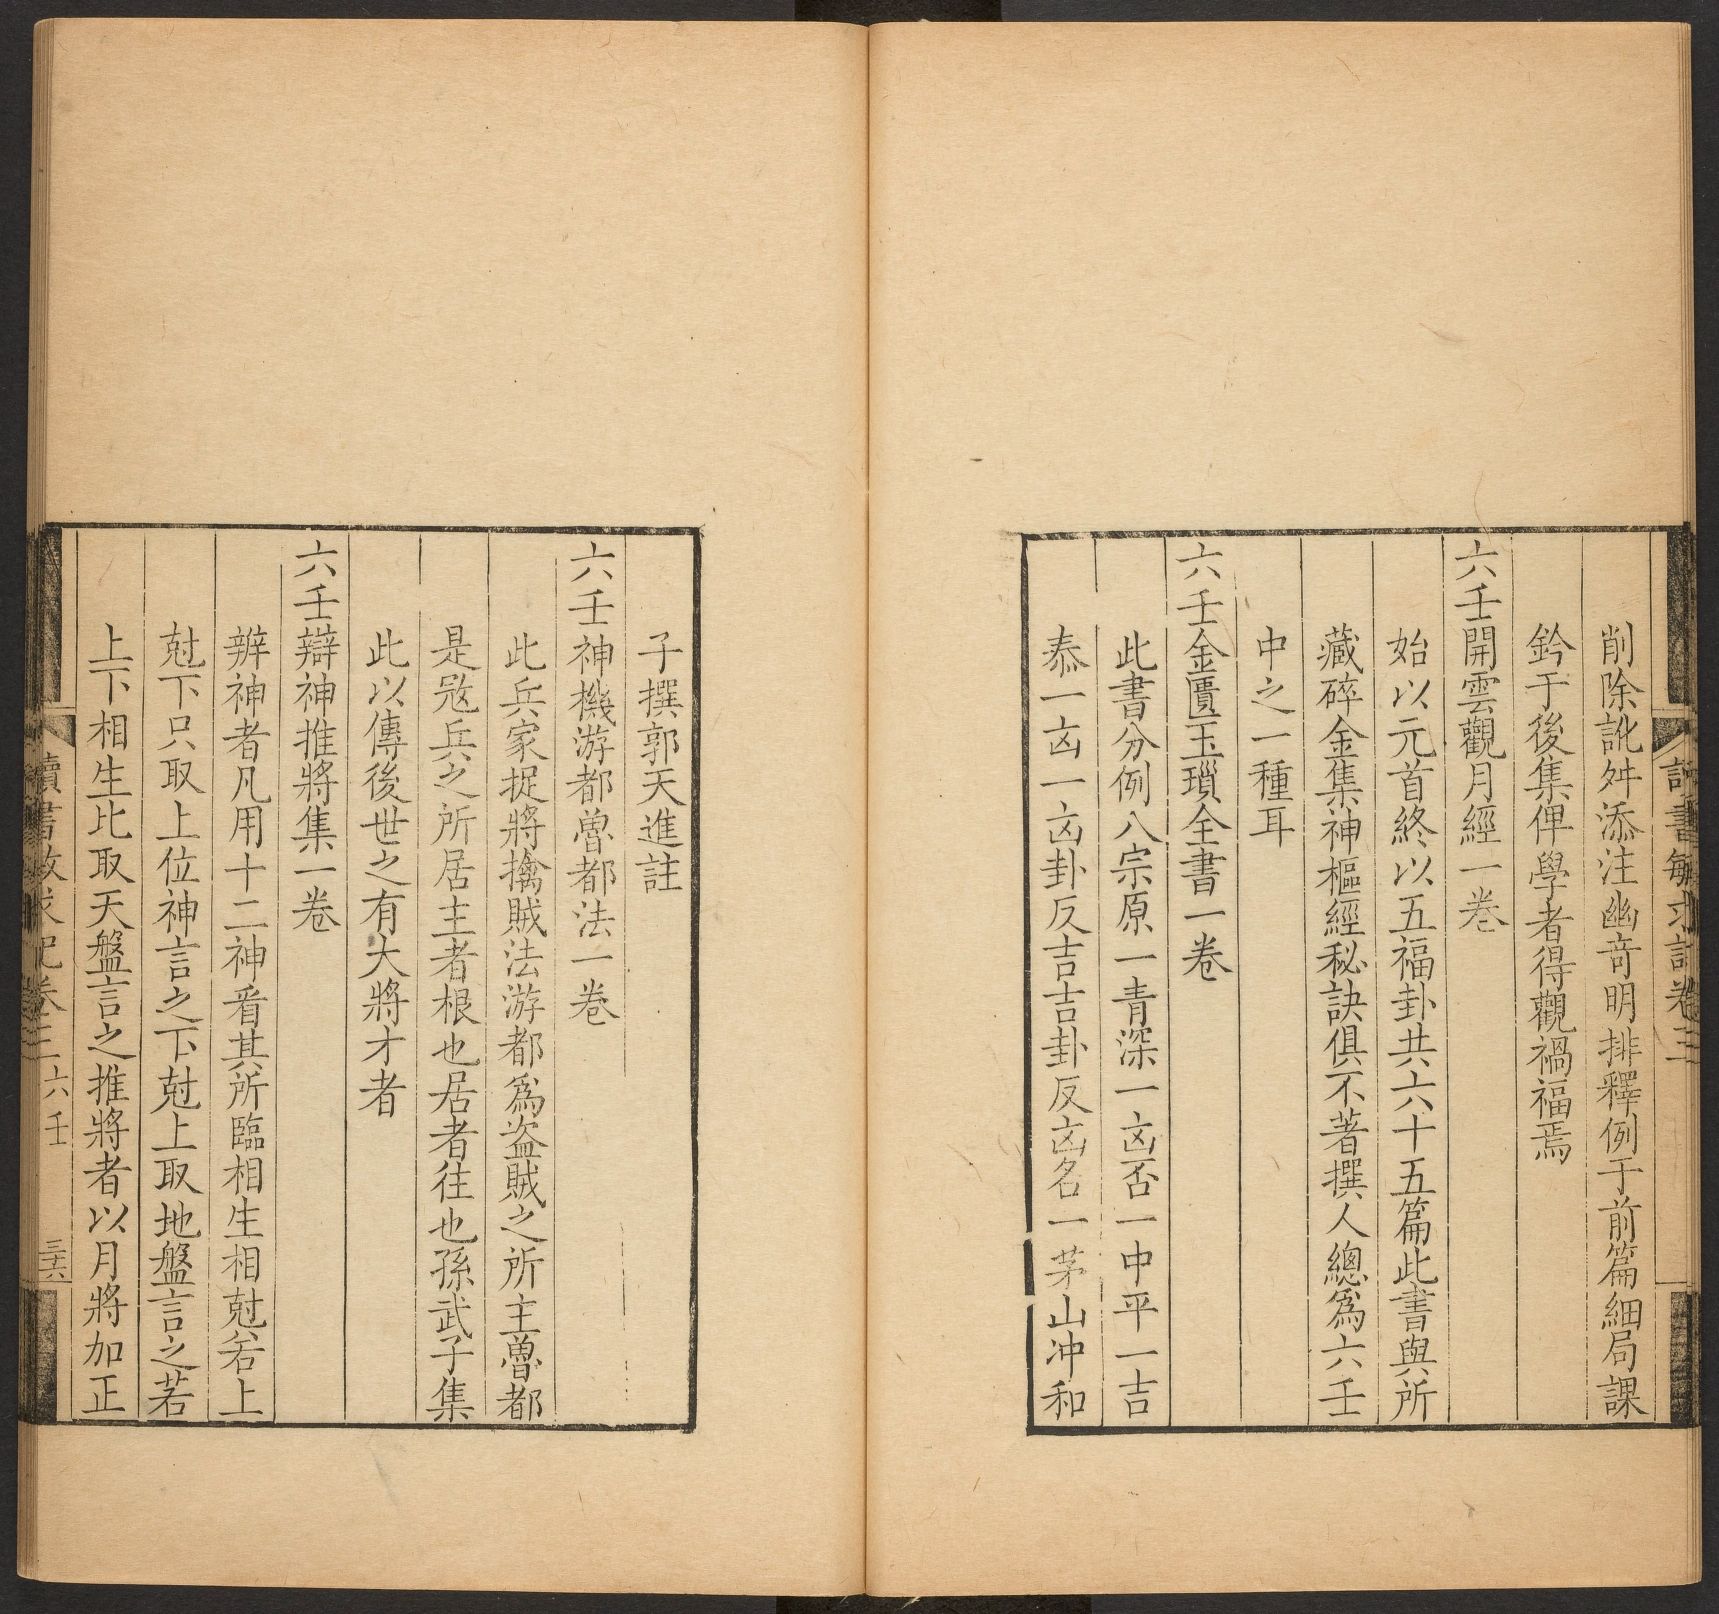 讀書敏求記卷三
削除訛舛添注幽奇明排釋例于前篇細局課
鈐于後集俾學者得觀禍福焉
六壬開雲觀月經一卷
始以元首終以五福卦共六十五篇此書與所
藏碎金集神樞經秘訣俱不著撰人總爲六壬
中之一種耳
六壬金匱玉瑣全書一卷
此書分例八宗原一青深一凶否一中平一吉
泰一凶一凶卦反吉吉卦反凶名一茅山冲和
子撰郭天進註
六壬神機游都魯都法一卷
此兵家捉將擒賊法游都爲盗賊之所主魯都
是宼兵之所居主者根也居者往也孫武子集
此以傳後世之有大將才者
六壬辯神推將集一卷
辨神者凡用十二神看其所臨相生相尅若上
尅下只取上位神言之下尅上取地盤言之若
上下相生比取天盤言之推將者以月將加正
讀書敏求記卷三六壬 三六